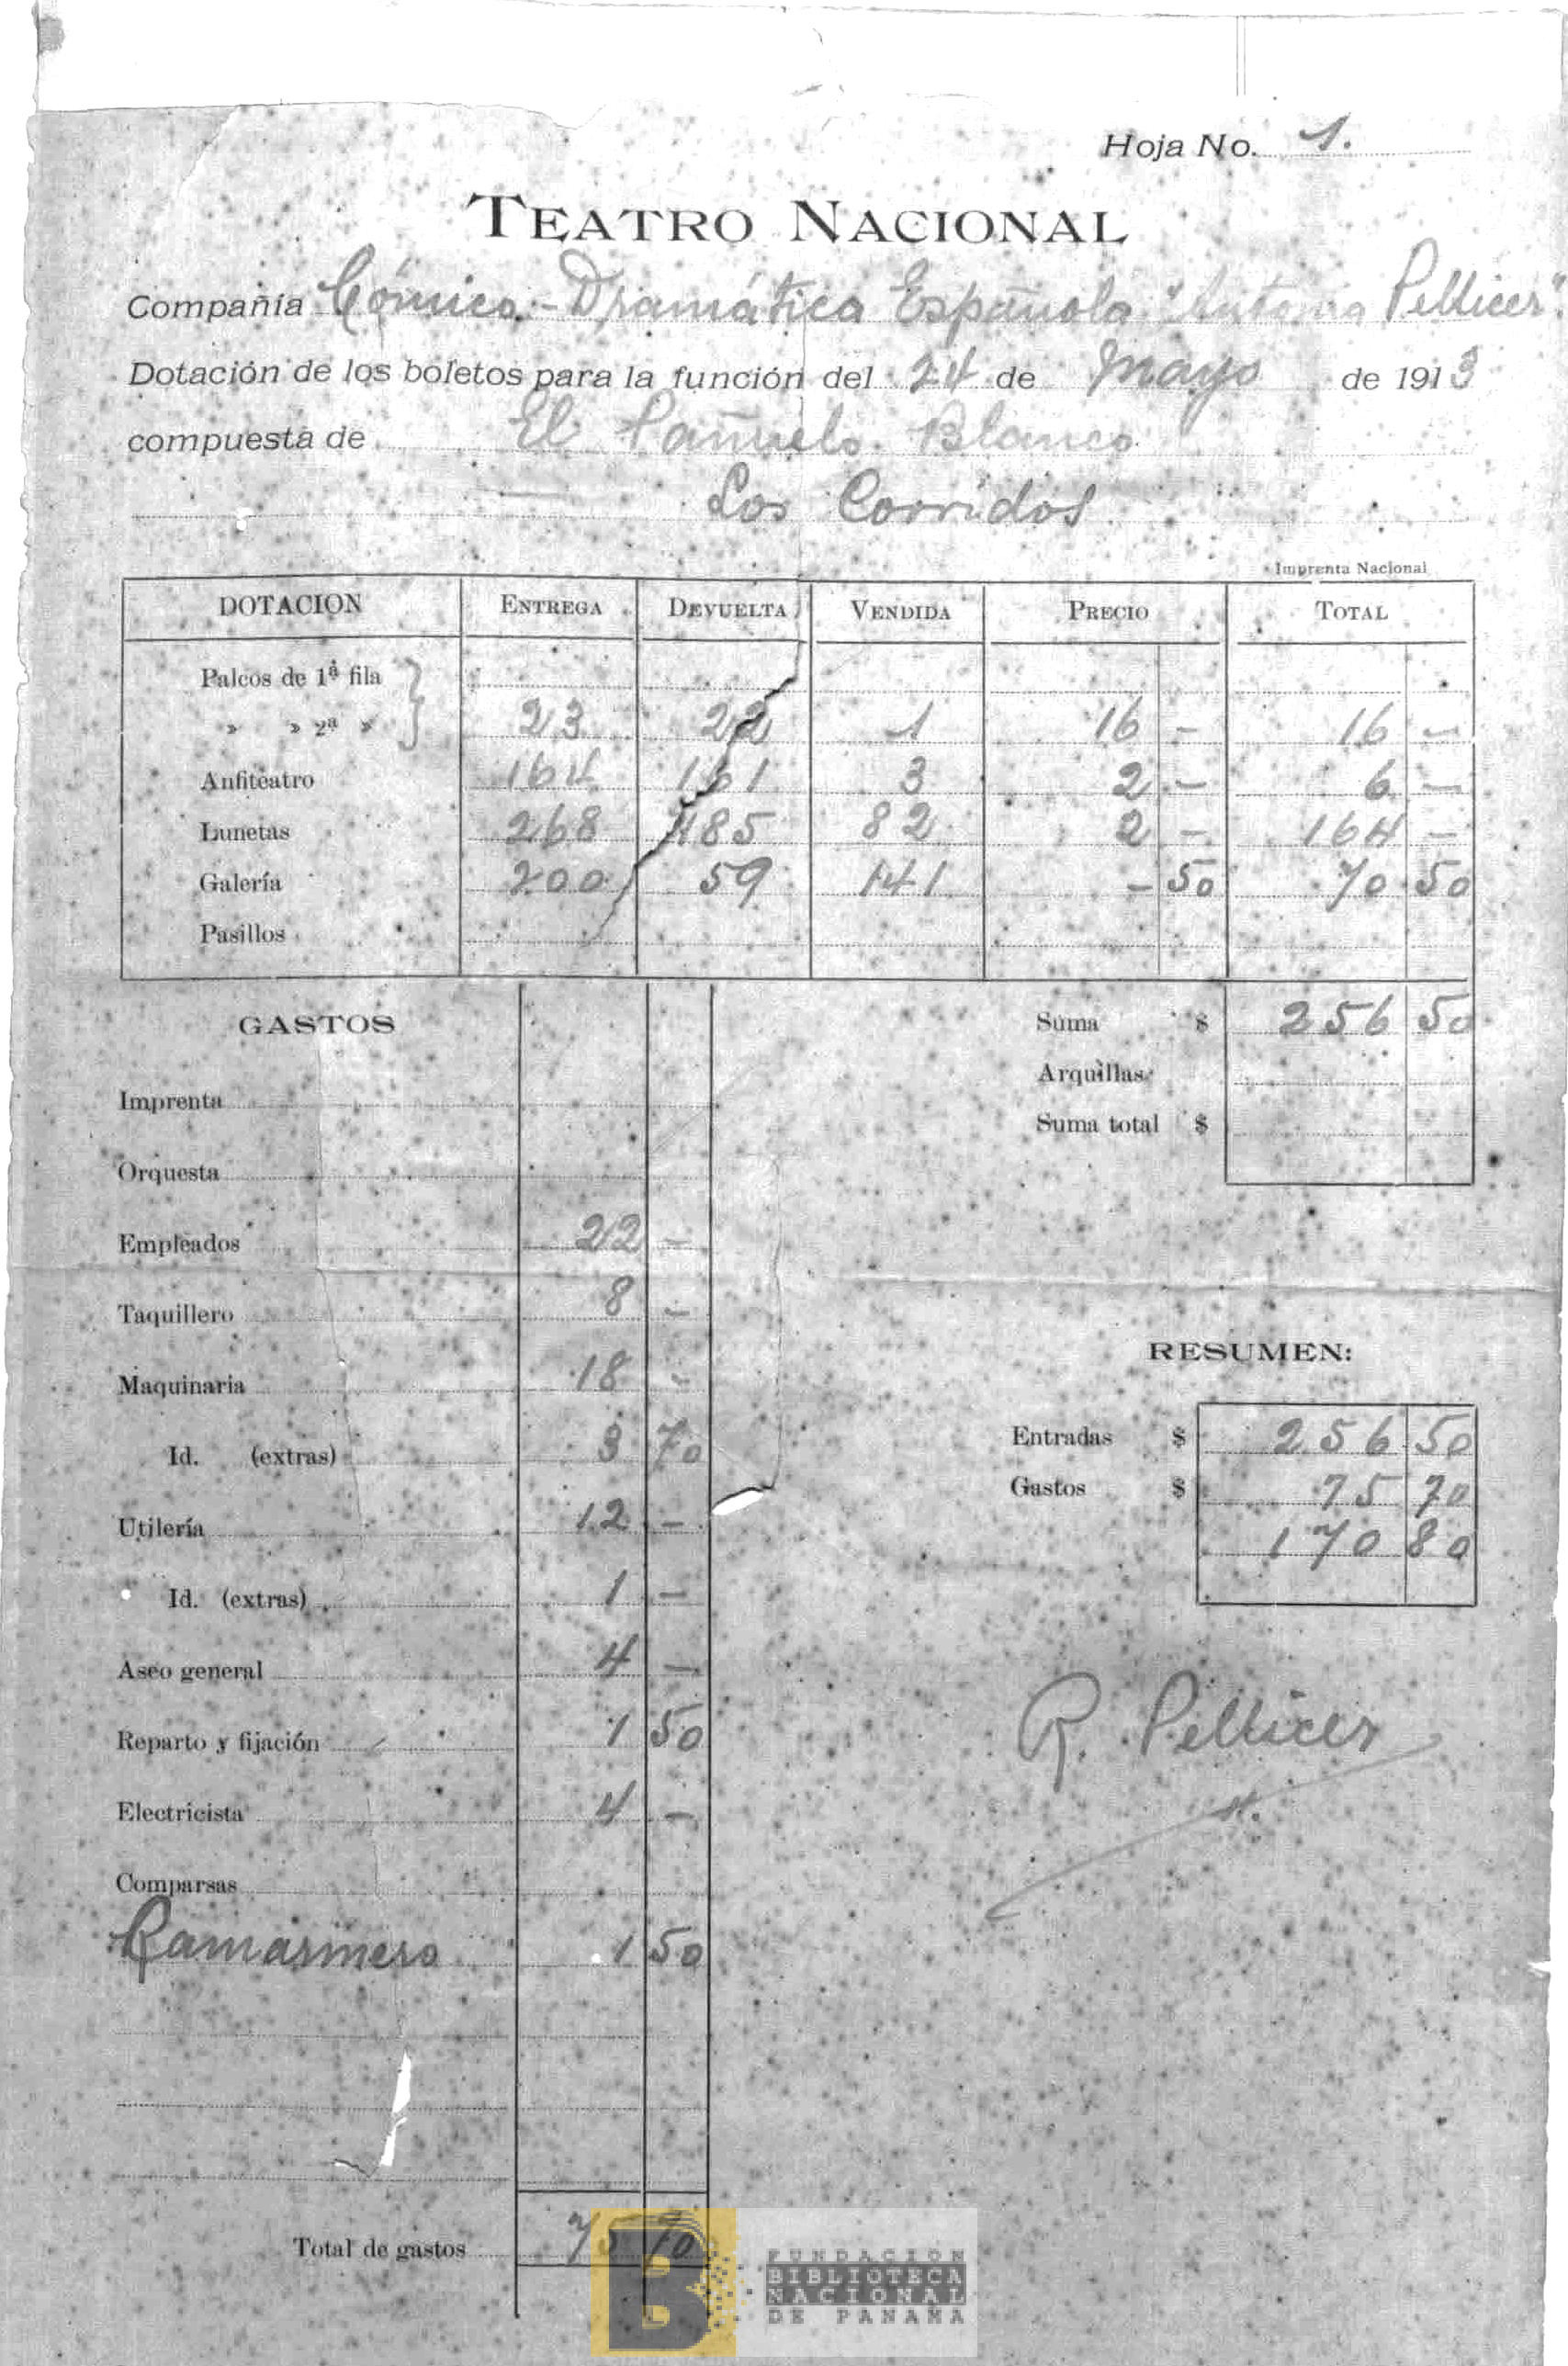 Hoja No. 1.
TEATRO NACIONAL
Compañía Cómico-Dramática Española "Antonia Pellicer".
Dotación de los boletos para la función del 24 de Mayo de 1913
compuesta de El Pañuelo Blanco
Los Corridos
Imprenta Nacional
DOTACION ENTREGA DEVUELTA VENDIDA PRECIO TOTAL
Palcos de 1ª fila
» » 2ª » 23 22 1 16 - 16 -
Anfiteatro 164 161 3 2 - 6 -
Lunetas 268 185 82 2 - 164 -
Galería 200 59 141 - 50 70 50
Pasillos
Suma $ 256 50
Arquillas
Suma total $
GASTOS
Imprenta
Orquesta
Empleados 22 -
Taquillero 8 -
Maquinaria 18 -
Id. (extras) 3 70
Utilería 12 -
Id. (extras) 1 -
Aseo general 4 -
Reparto y fijación 1 50
Electricista 4 -
Comparsas
Camarinero 1 50
Total de gastos 75 70
RESUMEN:
Entradas $ 256 50
Gastos $ 75 70
170 80
R. Pellicer
FUNDACIÓN
BIBLIOTECA
NACIONAL
DE PANAMA